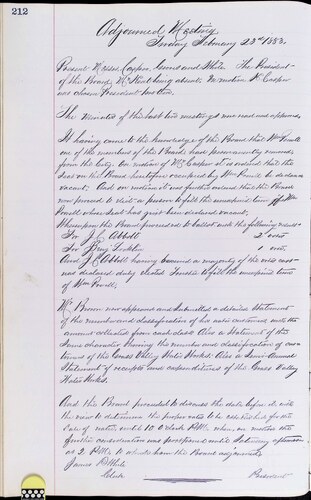 212
Adjourned Meeting
Friday February 23rd 1883.
Present Messrs Casper, Jones and White. The President
of the Board, Mr being absent, on motion Mr Casper
was chosen President pro tem.
The Minutes of the last two meetings were read and approved.
It having come to the knowledge of the Board that Wm Powell
one of the members of this Board had permanently removed
from the City, on motion of Mr Casper it is ordered that the
seat on this Board heretofore occupied by Wm Powell be declared
vacant. And on motion it was further ordered that the Board
now proceed to elect a person to fill the unexpired term of Wm
Powell whose seat has just been declared vacant.
Whereupon the Board proceeded to ballot with the following result
For J. C. Abbott 2 votes
For 1 vote.
And J C Abbott having received a majority of the votes cast
was declared duly elected Trustee to fill the unexpired term
of Wm Powell.
Mr Brown now appeared and submitted a detailed Statement
of the number and classification of the water customers with the
amount collected from each class. Also a Statement of the
same character showing the number and classification of cus-
tomers of the Grass Valley Water Works. Also a Semi-Annual
Statement of receipts and expenditures of the Grass Valley
Water Works.
And this Board proceeded to discuss the data before it with
the view to determine the proper rates to be established for the
sale of water until 10 O'clock P.M. when, on motion the
further consideration was postponed until Saturday afternoon
at 2 P.M. to which hour the Board adjourned.
James White
Clerk President